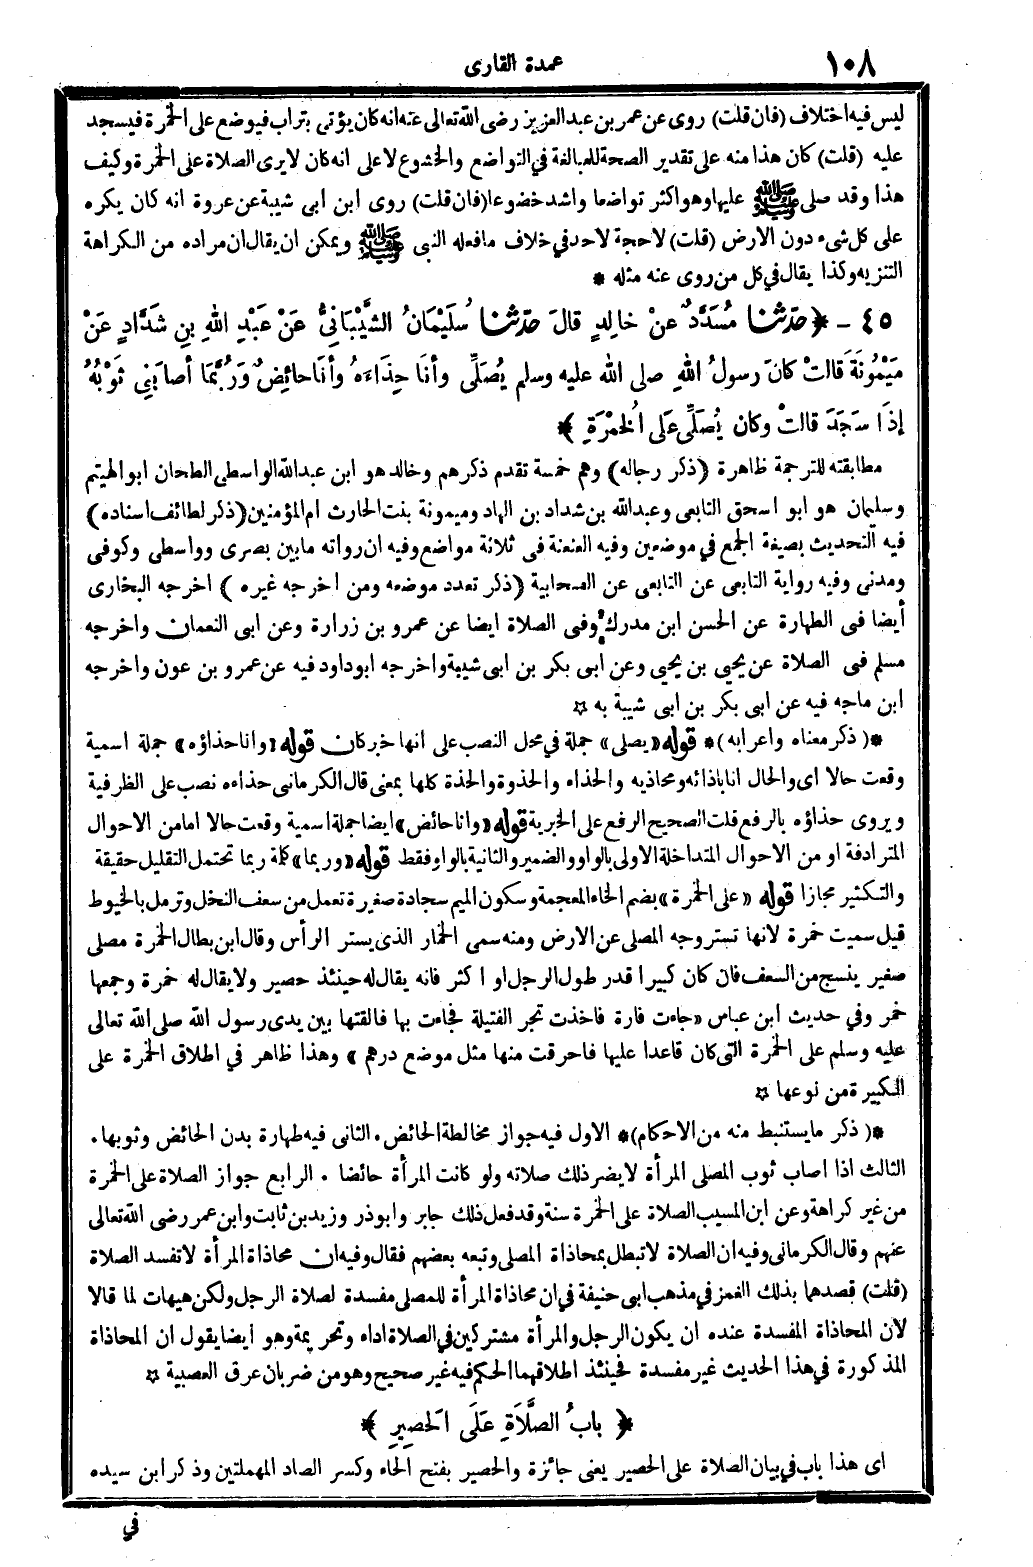 ١٠٨
عمدة القارى
ليس فيه اختلاف (فان قلت) روى عن عمر بن عبد العزيز رضى الله تعالى عنه انه كان يؤتى بتراب فيوضع على الخمرة فيسجد
عليه (قلت) كان هذا منه على تقدير الصحة للمبالغة في التواضع والخشوع لا على انه كان لا يرى الصلاة على الخمرة وكيف
هذا وقد صلى ﷺ عليها وهو اكثر تواضعا واشد خضوعا (فان قلت) روى ابن ابى شيبة عن عروة انه كان يكره
على كل شىء دون الارض (قلت) لا حجة لاحد في خلاف ما فعله النبى ﷺ ويمكن ان يقال ان مراده من الكراهة
التنزيه وكذا يقال في كل من روى عنه مثله *
٤٥ - ﴿ حدّثنا مُسَدَّدٌ عنْ خالِدٍ قالَ حدّثنا سُلَيْمَانُ الشَّيْبَانِيُّ عَنْ عَبْدِ اللهِ بنِ شَدَّادٍ عَنْ
مَيْمُونَةَ قالتْ كانَ رسولُ اللهِ صلى الله عليه وسلم يُصَلِّى وأنَا حِذَاءَهُ وأنَا حائِضٌ وَرُبَّمَا أصابَنِي ثَوْبُهُ
إذَا سَجَدَ قالتْ وكان يُصَلِّى عَلَى الْخُمْرَةِ ﴾
مطابقته للترجمة ظاهرة (ذكر رجاله) وهم خمسة تقدم ذكرهم وخالد هو ابن عبد الله الواسطى الطحان ابو الهيتم
وسليمان هو ابو اسحق التابعى وعبد الله بن شداد بن الهاد وميمونة بنت الحارث ام المؤمنين (ذكر لطائف اسناده)
فيه التحديث بصيغة الجمع في موضعين وفيه العنعنة فى ثلاثة مواضع وفيه ان رواته ما بين بصرى وواسطى وكوفى
ومدنى وفيه رواية التابعى عن التابعى عن الصحابية (ذكر تعدد موضعه ومن اخرجه غيره) اخرجه البخارى
أيضا فى الطهارة عن الحسن ابن مدرك وفى الصلاة ايضا عن عمرو بن زرارة وعن ابى النعمان واخرجه
مسلم فى الصلاة عن يحيي بن يحيي وعن ابى بكر بن ابى شيبة واخرجه ابوداود فيه عن عمرو بن عون واخرجه
ابن ماجه فيه عن ابى بكر بن ابى شيبة به ☆
*(ذكر معناه واعرابه)* قوله «يصلى» جملة في محل النصب على انها خبر كان قوله «وانا حذاؤه» جملة اسمية
وقعت حالا اى والحال انا باذائه ومحاذيه والحذاء والحذوة والحذة كلها بمعنى قال الكرمانى حذاءه نصب على الظرفية
ويروى حذاؤه بالرفع قلت الصحيح الرفع على الخبرية قوله «وانا حائض» ايضا جملة اسمية وقعت حالا اما من الاحوال
المترادفة او من الاحوال المتداخلة الاولى بالواو والضمير والثانية بالواو فقط قوله «وربما» كلمة ربما تحتمل التقليل حقيقة
والتكثير مجازا قوله «على الخمرة» بضم الخاء المعجمة وسكون الميم سجادة صغيرة تعمل من سعف النخل وترمل بالخيوط
قيل سميت خمرة لانها تستر وجه المصلى عن الارض ومنه سمى الخمار الذى يستر الرأس وقال ابن بطال الخمرة مصلى
صغير ينسج من السعف فان كان كبيرا قدر طول الرجل او اكثر فانه يقال له حينئذ حصير ولا يقال له خمرة وجمعها
خمر وفي حديث ابن عباس «جاءت فارة فاخذت تجر الفتيلة فجاءت بها فالقتها بين يدى رسول الله صلى الله تعالى
عليه وسلم على الخمرة التى كان قاعدا عليها فاحرقت منها مثل موضع درهم» وهذا ظاهر في اطلاق الخمرة على
الكبيرة من نوعها ☆
*(ذكر ما يستنبط منه من الاحكام)* الاول فيه جواز مخالطة الحائض. الثانى فيه طهارة بدن الحائض وثوبها.
الثالث اذا اصاب ثوب المصلى المرأة لا يضر ذلك صلاته ولو كانت المرأة حائضا. الرابع جواز الصلاة على الخمرة
من غير كراهة وعن ابن المسيب الصلاة على الخمرة سنة وقد فعل ذلك جابر وابو ذر وزيد بن ثابت وابن عمر رضى الله تعالى
عنهم وقال الكرمانى وفيه ان الصلاة لا تبطل بمحاذاة المصلى وتبعه بعضهم فقال وفيه ان محاذاة المرأة لا تفسد الصلاة
(قلت) قصدهما بذلك الغمز في مذهب ابى حنيفة في ان محاذاة المرأة للمصلى مفسدة لصلاة الرجل ولكن هيهات لما قالا
لان المحاذاة المفسدة عنده ان يكون الرجل والمرأة مشتركين في الصلاة اداء وتحريمة وهو ايضا يقول ان المحاذاة
المذكورة في هذا الحديث غير مفسدة فحينئذ اطلاقهما الحكم فيه غير صحيح وهو من ضربان عرق العصبية ☆
﴿ بابُ الصَّلَاةِ عَلَى الْحَصِيرِ ﴾
اى هذا باب في بيان الصلاة على الحصير يعنى جائزة والحصير بفتح الحاء وكسر الصاد المهملتين وذكر ابن سيده
في